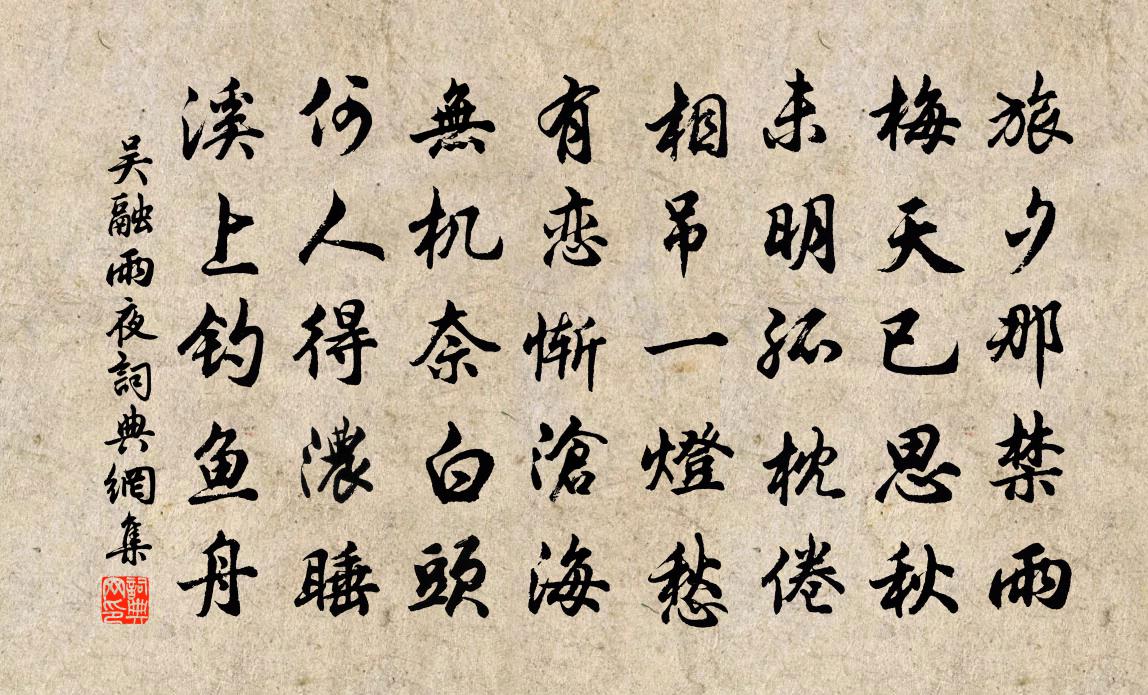 旅夕那禁雨
梅天已思秋
未明孤枕倦
相吊一燈愁
有恋慚滄海
無机奈白頭
何人得濃睡
溪上钓鱼舟
吴融雨夜詞典網集
詞典网印